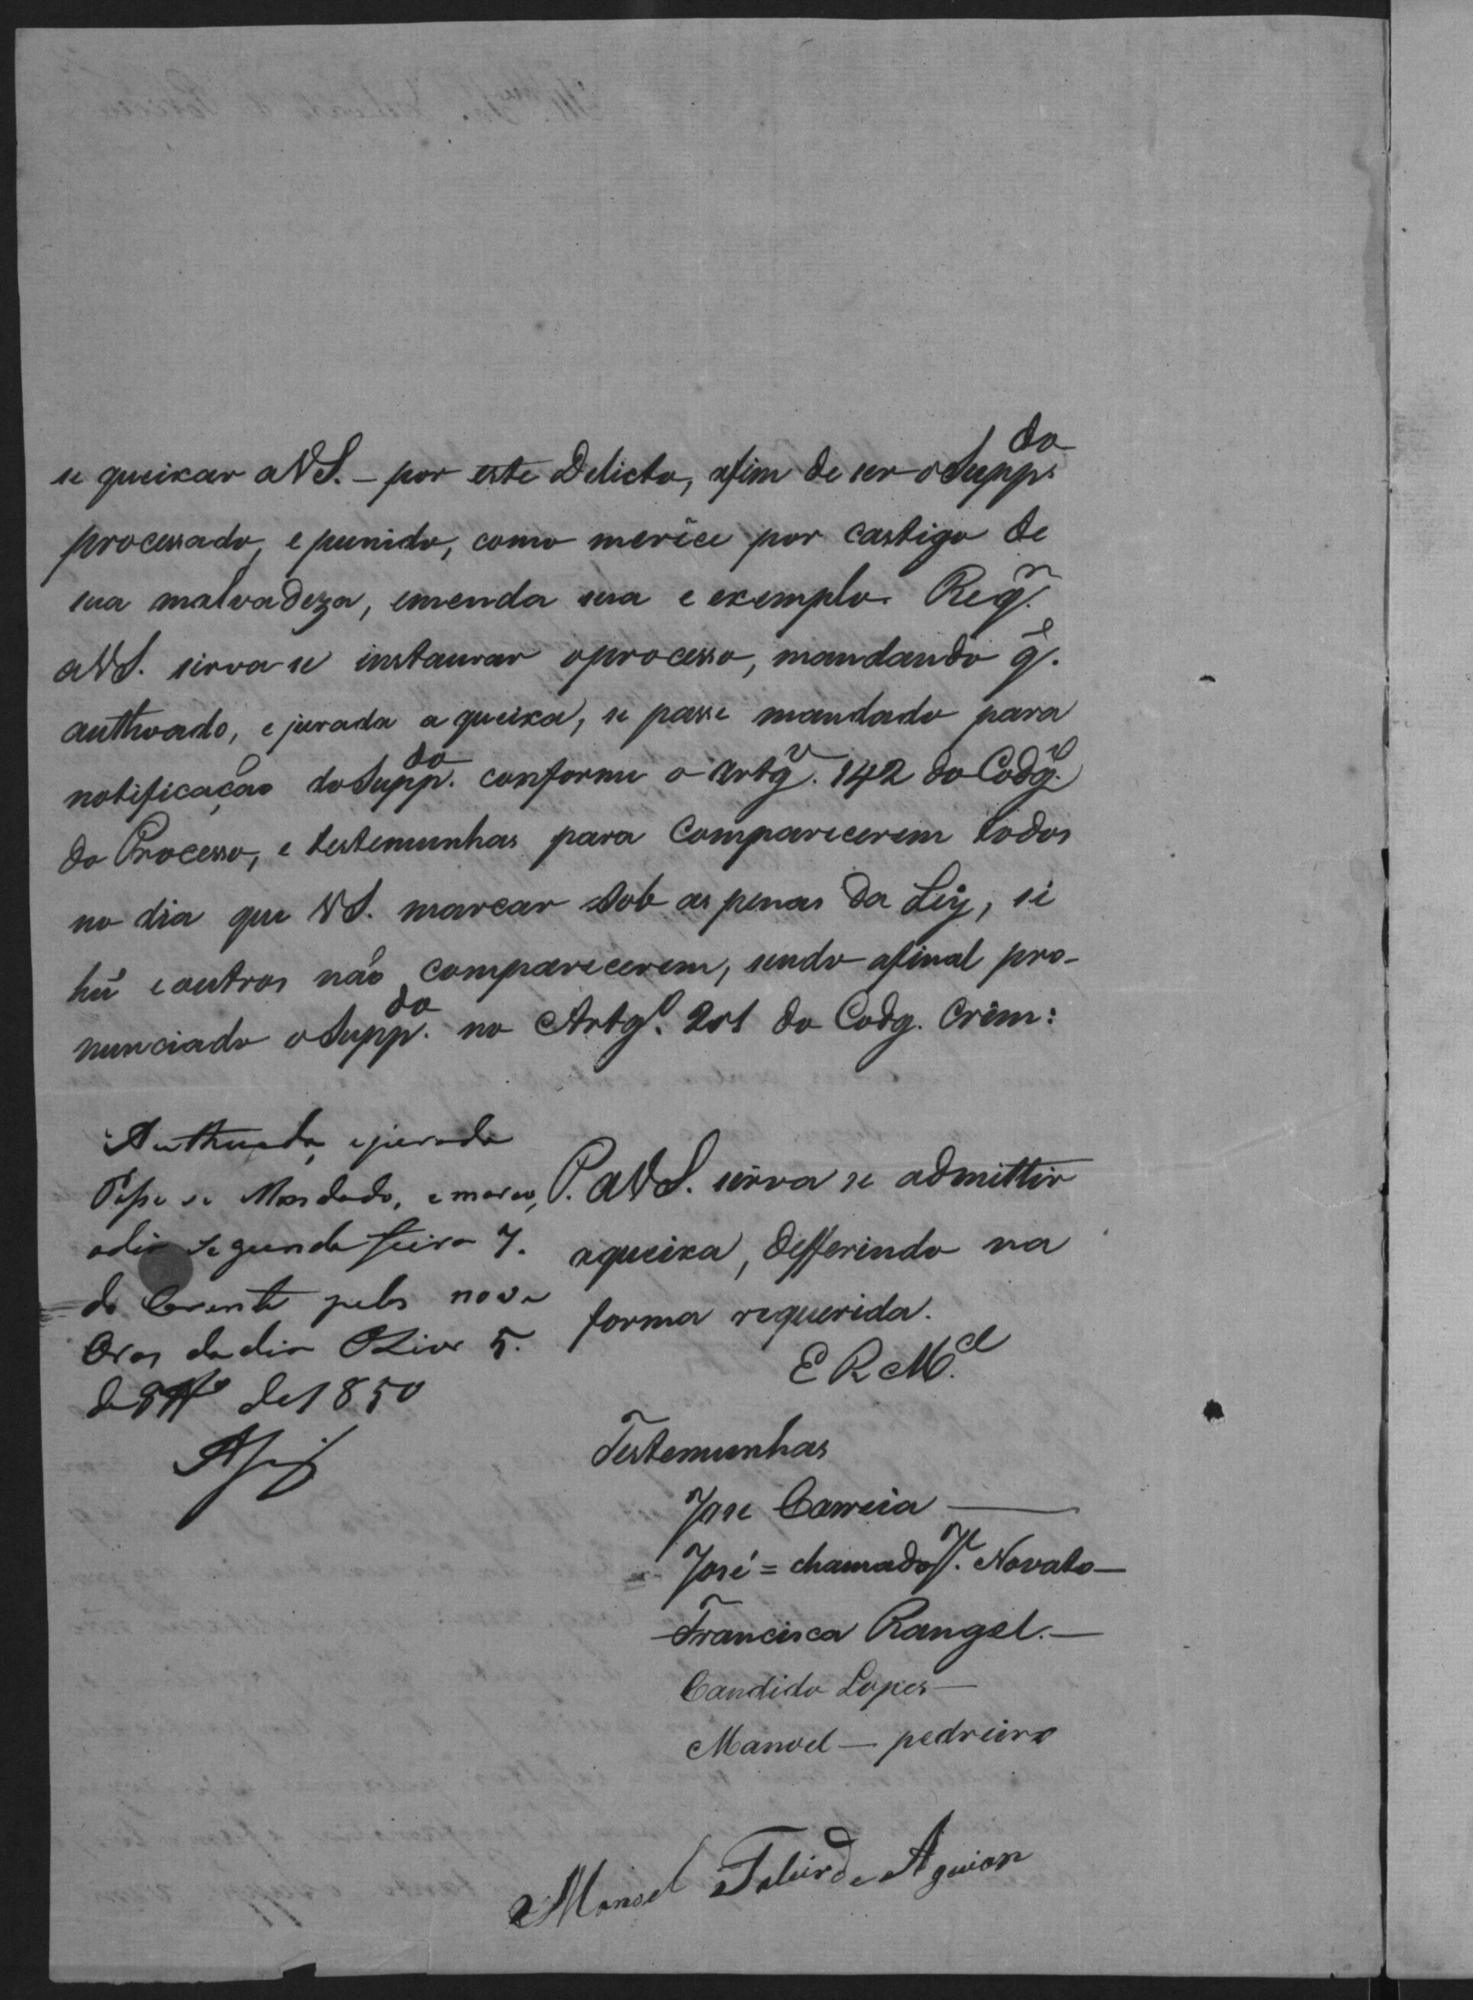 se queixar a V S. – por este Delicto, afim de ser o Supp.do
processado, e punido, como merece por castigo de
sua malvadeza, emenda sua e exemplo. Req.r
a V S. sirva-se instaurar o processo, mandando q.e
authoado, e jurada a queixa, se passe mandado para
notificação do Supp.do conforme o Artg.o 142 do Codg.o
do Processo, e testemunhas para comparecerem todos
no dia que V S. marcar sob as penas da Ley, si
hũ e outros não comparecerem, sendo afinal pro-
nunciado o Supp.do no Artg.o 201 do Codg. Crim:
P. a V S. sirva se admittir
a queixa, defferindo na
forma requerida.
E R M.ce
Authuada, e jurada
Pase se Mandado, e marco,
o dia segunda feira 7.
do Corente pelas nove
Oras do dia 5.
de de 1850
Testemunhas
Jose Correia —
José = chamado J.e Novato —
Francisca Rangel. —
Candido Lopes —
Manoel — pedreiro
Manoel de Aguiar